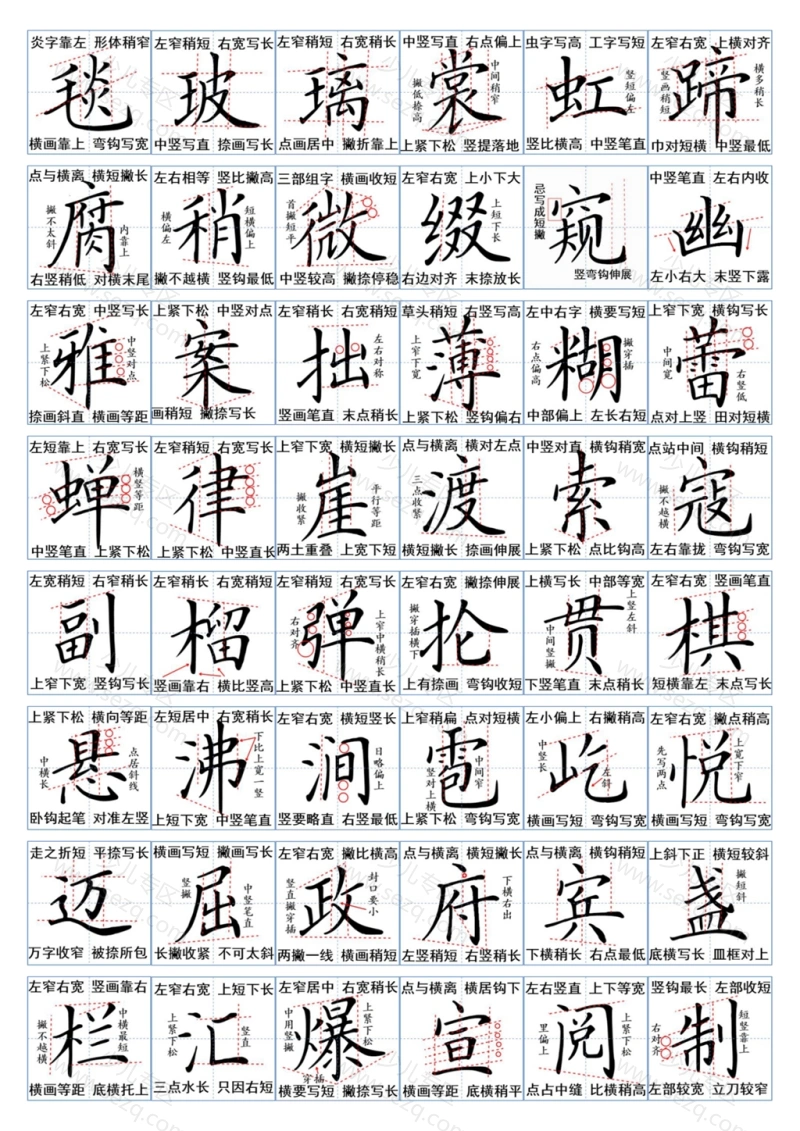 炎字靠左 形体稍窄
毯
横画靠上 弯钩写宽
左窄稍短 右宽写长
玻
中竖写直 捺画写长
左窄稍短 右宽稍长
璃
点画居中 撇折靠上
中竖写直 右点偏上
撇低捺高
裳
中间稍窄
上紧下松 竖提落地
虫字写高 工字写短
虹
竖短偏左
竖比横高 中竖笔直
左窄右宽 上横对齐
竖画稍短
蹄
横多稍长
巾对短横 中竖最低
点与横离 横短撇长
撇不太斜
腐
内靠上
右竖稍低 对横末尾
左右相等 竖比撇高
横偏左
稍
短横偏上
撇不越横 竖钩最低
三部组字 横画收短
首撇短平
微
中竖较高 撇捺停稳
左窄右宽 上小下大
缀
上短下长
右边对齐 末捺放长
忌写成短撇
窥
竖弯钩伸展
中竖笔直 左右内收
幽
左小右大 末竖下露
左窄右宽 中竖写长
上紧下松
雅
中竖对点
捺画斜直 横画等距
上紧下松 中竖对点
案
画稍短 撇捺写长
左窄稍长 右宽稍短
拙
左右对称
竖画笔直 末点稍长
草头稍短 右竖写高
上窄下宽
薄
上紧下松 竖钩偏右
左中右字 横要写短
右点偏高
糊
撇穿插
中部偏上 左长右短
上窄下宽 横钩写长
中间宽
蕾
右竖低
点对上竖 田对短横
左短靠上 右宽写长
蝉
横竖等距
中竖笔直 上紧下松
左窄稍短 右宽写长
律
上紧下松 中竖直长
上窄下宽 横短撇长
撇收紧
崖
平行等距
两土重叠 上宽下短
点与横离 横对左点
三点收紧
渡
横短撇长 捺画伸展
中竖对直 横钩稍宽
索
上紧下松 点比钩高
点站中间 横钩稍短
撇不越横
寇
左右靠拢 弯钩写宽
左宽稍短 右窄稍长
副
上窄下宽 竖钩写长
左窄稍长 右宽稍短
榴
竖画靠右 横比竖高
左窄稍短 右宽写长
右对齐
弹
上窄中横稍长
上紧下松 中竖直长
左窄右宽 撇捺伸展
撇穿插横下
抡
上有捺画 弯钩收短
上横写长 中部等宽
中间竖撇
贯
上竖左斜
下竖笔直 末点稍长
左窄右宽 竖画笔直
棋
短横靠左 末点写长
上紧下松 横向等距
中横长
悬
点居斜线
卧钩起笔 对准左竖
左短居中 右宽稍长
沸
下比上宽一竖
上短下宽 中竖笔直
左窄右宽 横短竖长
涧
日略偏上
竖要略直 右竖最低
上窄稍扁 点对短横
竖对上横
雹
中间窄
上紧下松 弯钩写宽
左小偏上 右撇稍高
中竖长
屹
左斜
横画写短 弯钩写宽
左窄右宽 撇点稍高
先写两点
悦
上宽下窄
横画写短 弯钩写宽
走之折短 平捺写长
迈
万字收窄 被捺所包
横画写短 撇画写长
竖撇
屈
中竖笔直
长撇收紧 不可太斜
左窄右宽 撇比横高
竖直撇穿插
政
封口要小
两撇一线 横画稍短
点与横离 横短撇长
府
下横右出
左竖稍短 右竖稍长
点与横离 横钩稍短
宾
下横稍长 右点最低
上斜下正 横短较斜
盏
撇短斜
底横写长 皿框对上
左窄右宽 竖画靠右
撇不越横
栏
中横最短
横画等距 底横托上
左窄右宽 上短下长
上紧下松
汇
竖直
三点水长 只因右短
左窄居中 右宽写长
中用竖撇
爆
上紧下松
穿插
横要写短 撇捺写长
点与横离 横居钩下
宣
横画等距 底横稍平
左右竖直 上下等宽
里偏上
阅
上紧下松
点占中缝 比横稍高
竖钩最长 左部收短
右对齐
制
短竖靠上
左部较宽 立刀较窄